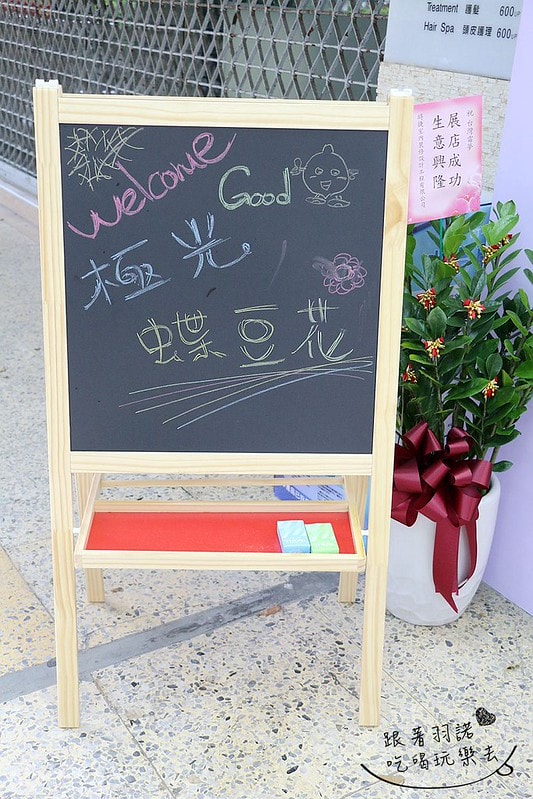 Treatment 護髮 600
Hair Spa 頭皮護理 600
welcome
Good
極光
蝶豆花
展店成功
生意興隆
跟著羽諾
吃喝玩樂去